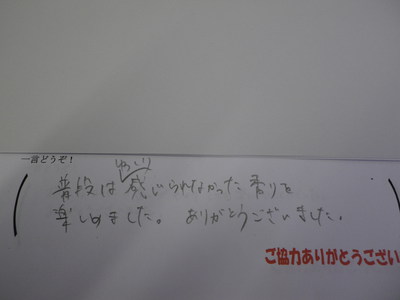 一言どうぞ！
ゆっくり
普段は感じられなかった香りを
楽しめました。ありがとうございました。
ご協力ありがとうござい